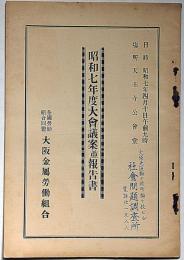 日時 昭和七年四月十日午前九時
場所 天王寺公會堂
社會問題調査所
昭和七年度大會議案並報告書
全國勞働組合同盟
大阪金属勞働組合